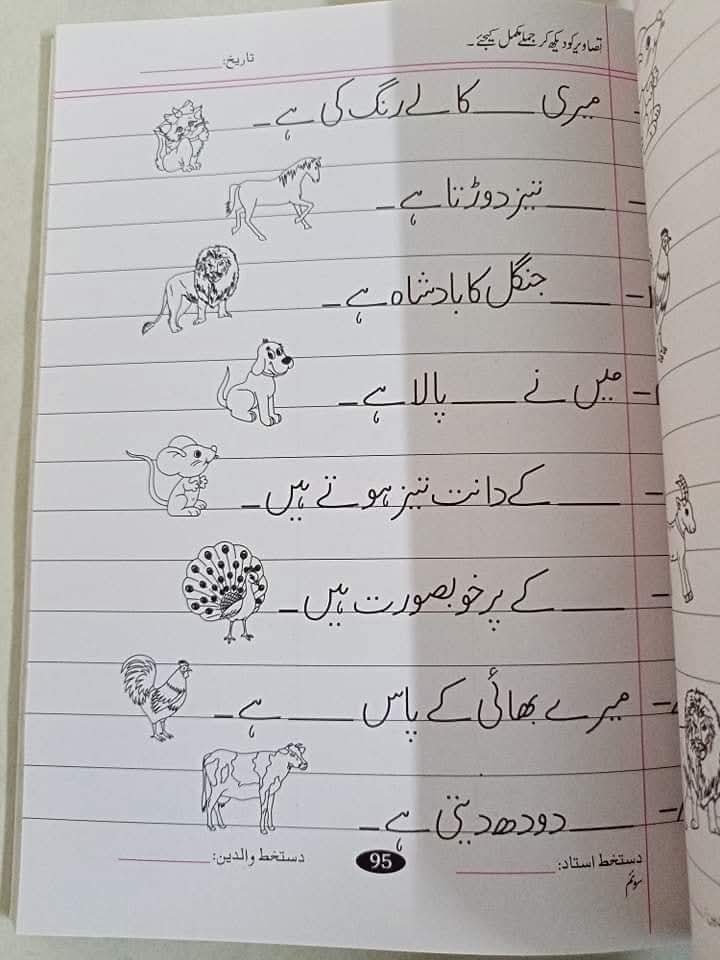 تصاویر کو دیکھ کر جملے مکمل کیجئے ۔
تاریخ: ________
میری ____ کالے رنگ کی ہے ۔
____ تیز دوڑتا ہے ۔
____ جنگل کا بادشاہ ہے ۔
میں نے ____ پالا ہے ۔
____ کے دانت تیز ہوتے ہیں ۔
____ کے پر خوبصورت ہیں ۔
میرے بھائی کے پاس ____ ہے ۔
____ دودھ دیتی ہے ۔
دستخط استاد: ________
95
دستخط والدین: ________
سوئم